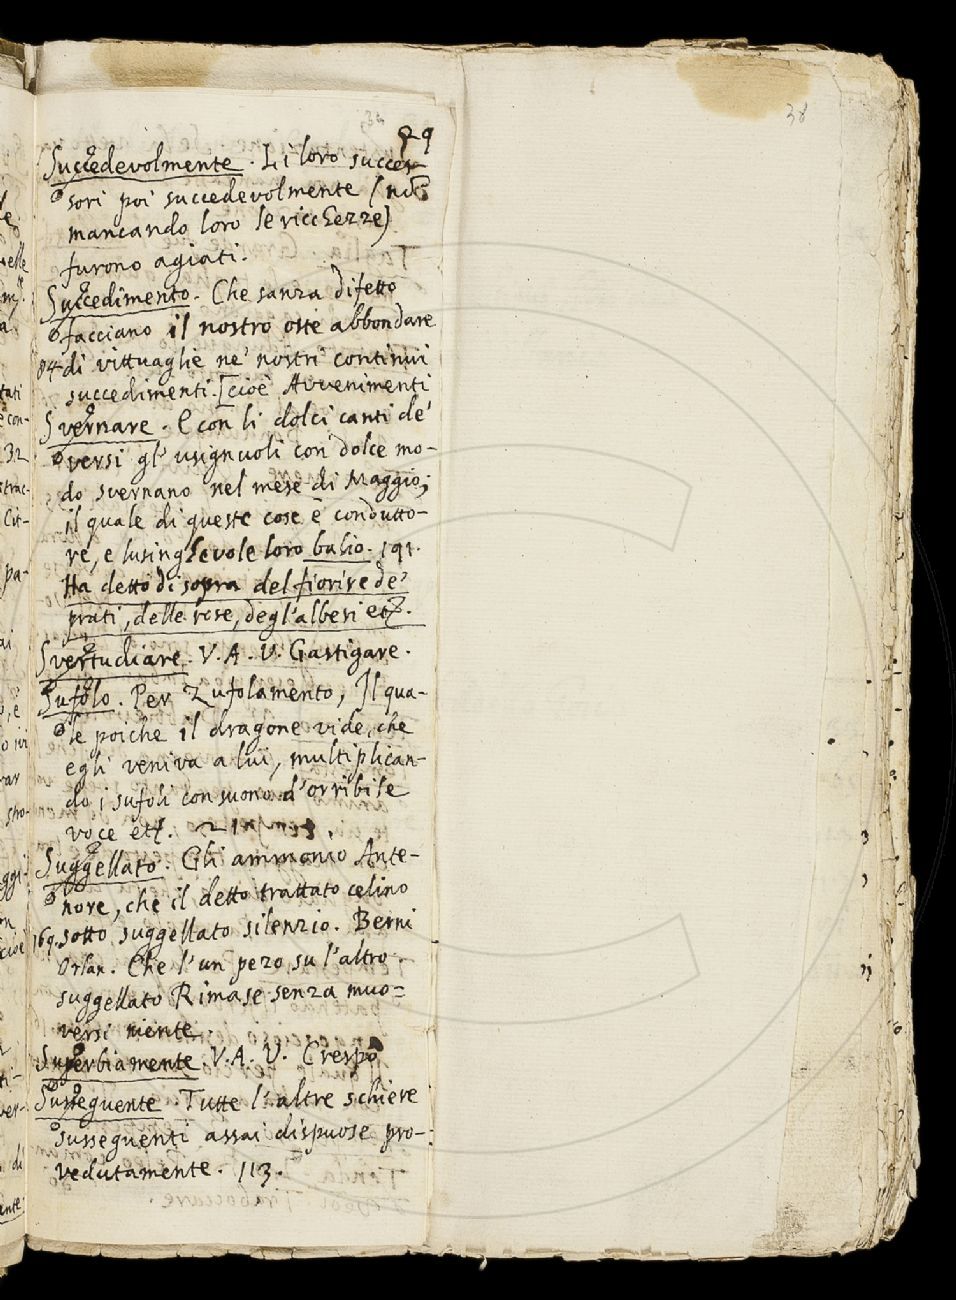 38
99
Succedevolmente. Li loro succes-
sori poi succedevolmente (nō
mancando loro le ricchezze)
furono agiati.
Succedimento. Che sanza difetto
facciano il nostro oste abbondare
84 di vittuaglie ne' nostri continui
succedimenti. [cioè Avvenimenti
Svernare. E con li dolci canti de'
versi gl' usignuoli con dolce mo-
do svernano nel mese di Maggio;
il quale di queste cose è condutto-
re, e lusinghevole loro balio. 191.
Ha detto di sopra del fiorire de'
prati, delle rose, degl'alberi etc.
Svertudiare. V. A. V. Gastigare.
Sufolo. Per Zufolamento, Il qua-
le poiche il dragone vide, che
egli veniva a lui, multiplican-
do i sufoli con suono d'orribile
voce etc.
Suggellato. Gli ammonio Ante-
nore, che il detto trattato celino
169. sotto suggellato silenzio. Berni
Orlan. Che l'un pezo su l'altro
suggellato Rimase senza muo=
versi niente.
Superbiamente. V. A. V. Crespo
Susseguente. Tutte l'altre schiere
susseguenti assai dispuose pro-
vedutamente. 113.